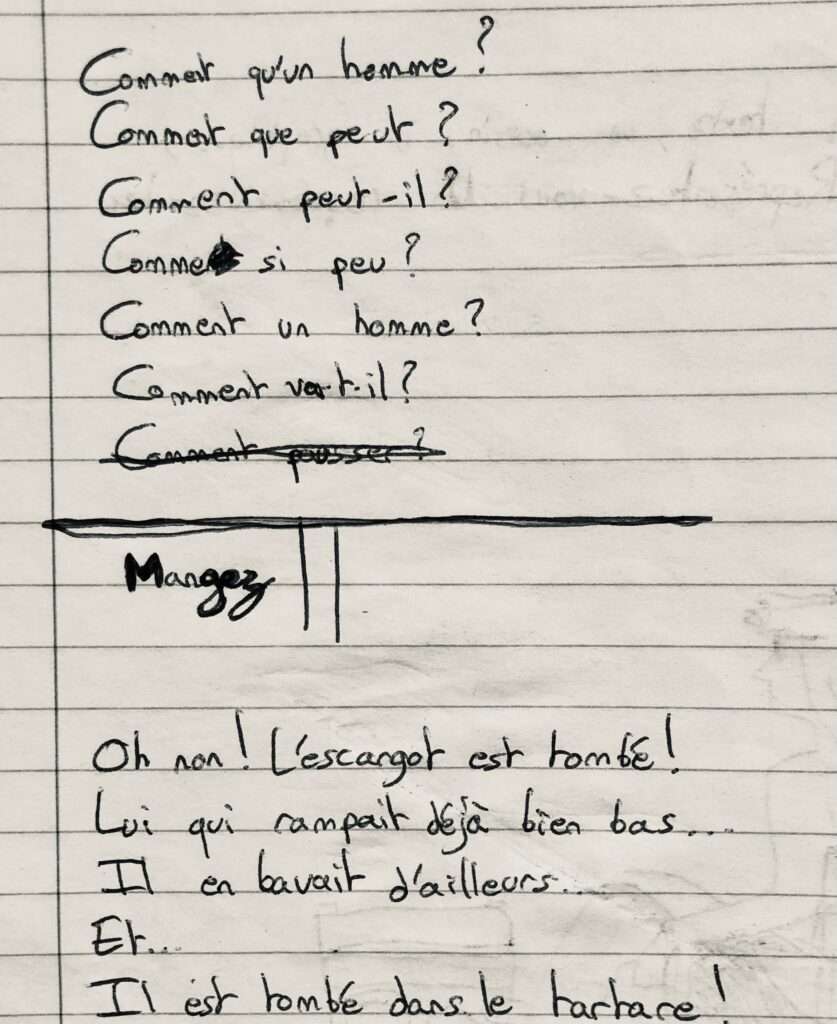 Comment qu'un homme ?
Comment que peut ?
Comment peut-il ?
Comme si peu ?
Comment un homme ?
Comment va-t-il ?
Comment pousser ?
Mangez
Oh non ! L'escargot est tombé !
Lui qui rampait déjà bien bas...
Il en bavait d'ailleurs...
Et...
Il est tombé dans le tartare !